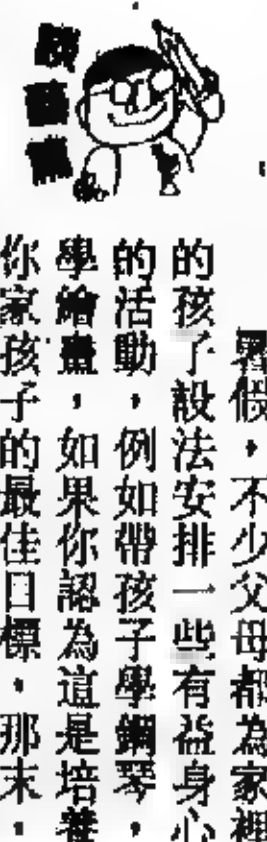 暑假，不少父母都為家裡
的孩子設法安排一些有益身心
的活動，例如帶孩子學鋼琴，
學繪畫，如果你認為這是培養
你家孩子的最佳目標，那末，